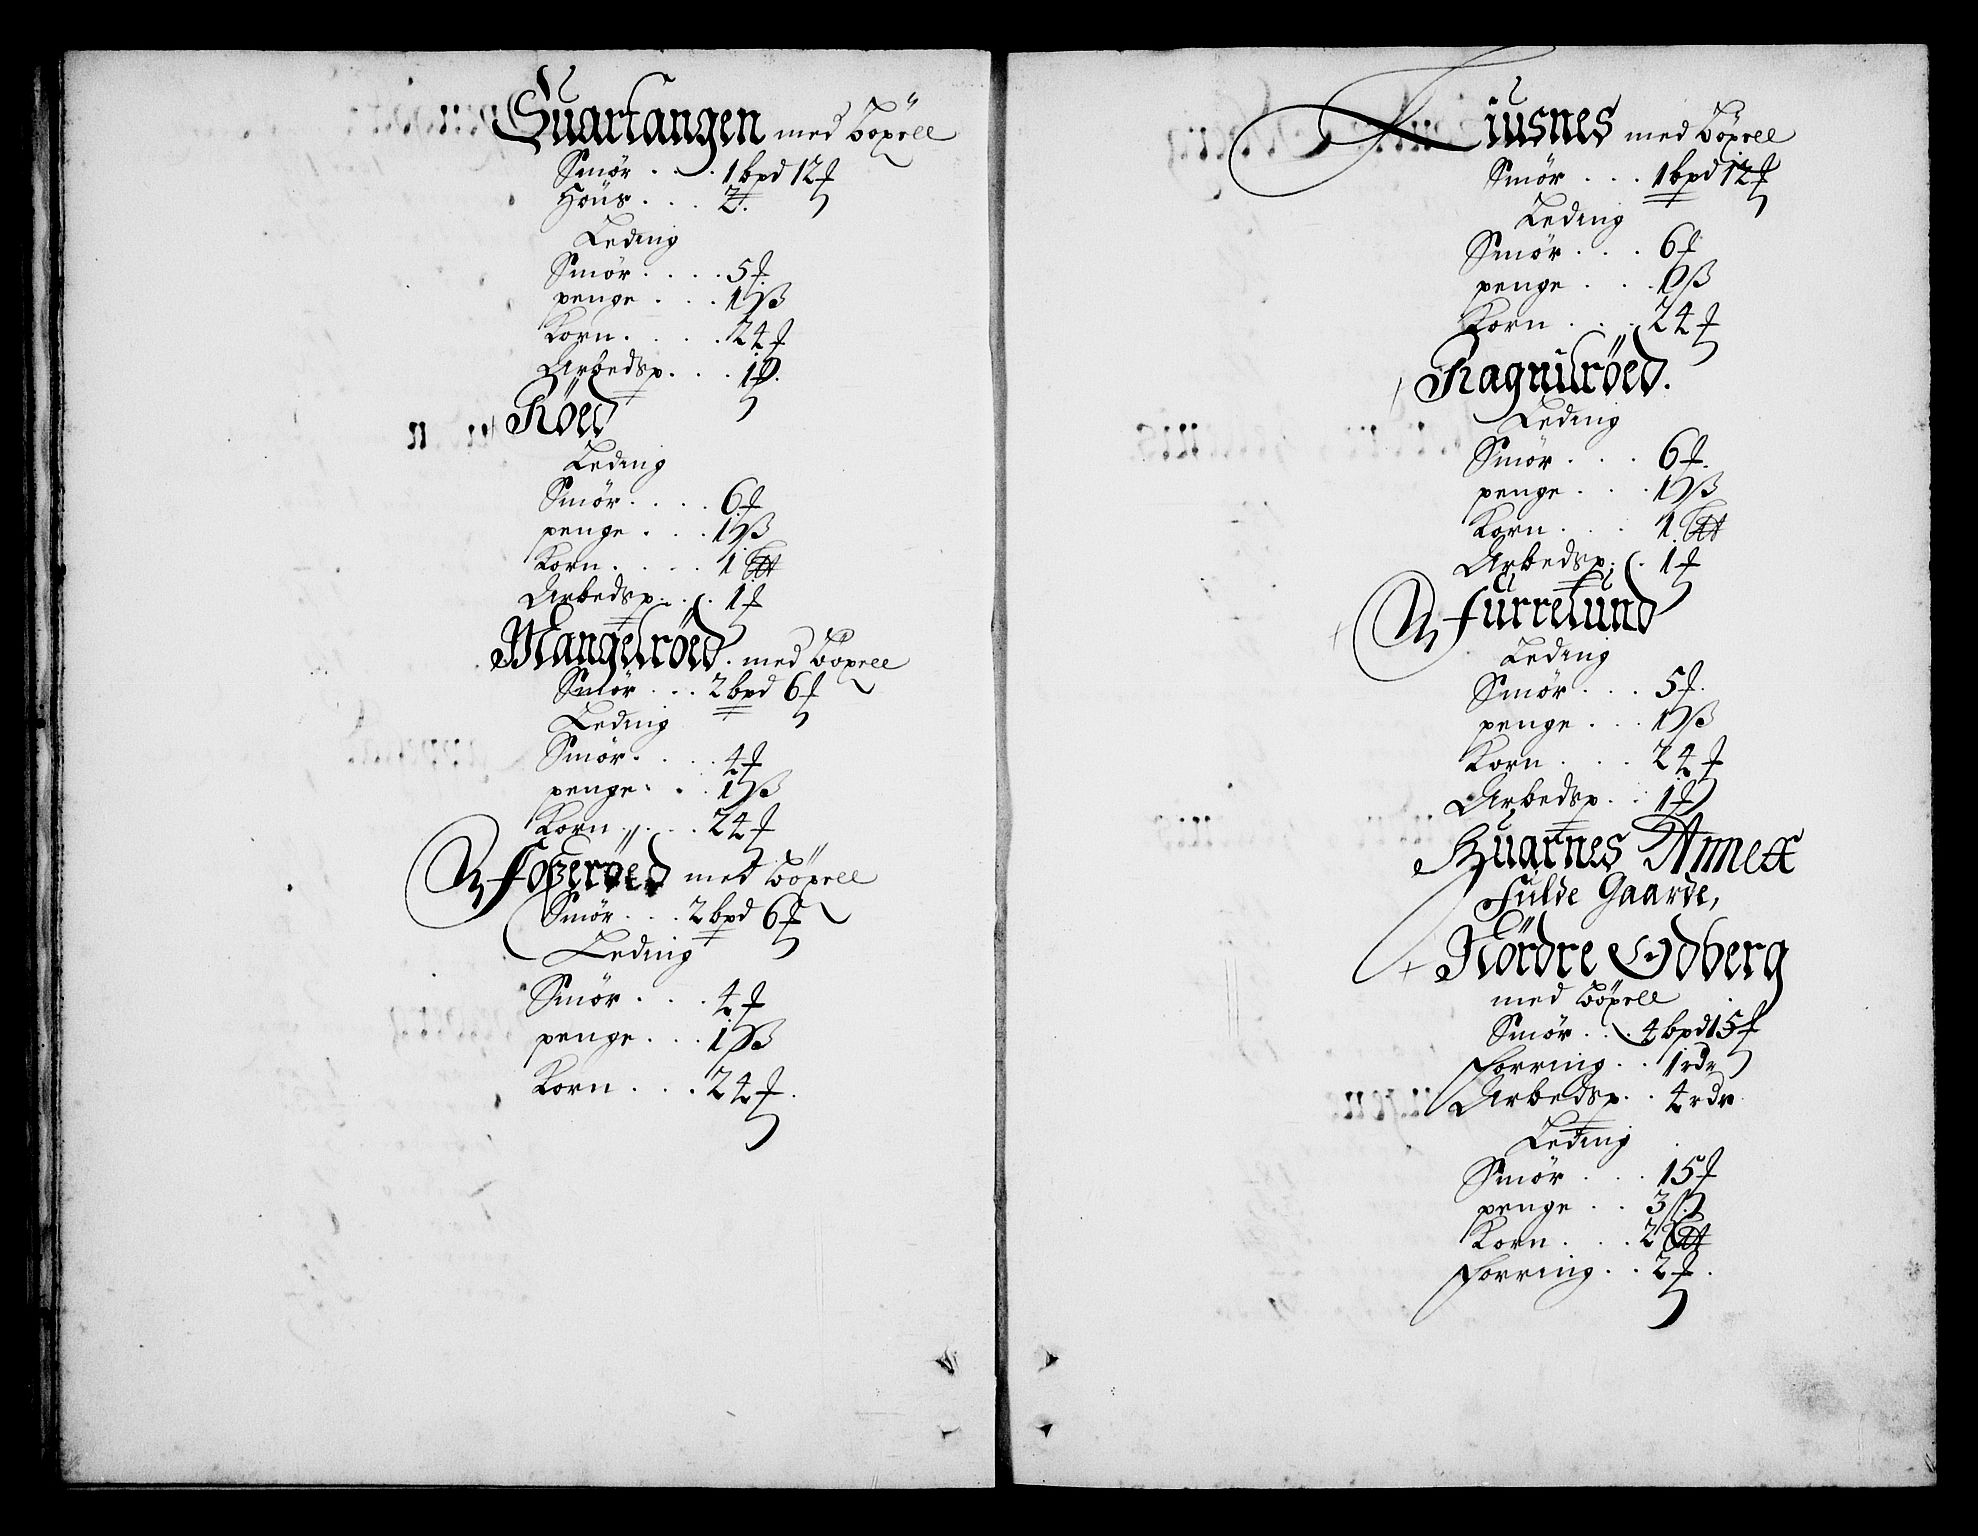 Suartangen med Böxell
Smör . . . 1 bpd 12 ℔
Höns . . . 2.
Leding
Smör . . . . 5 ℔
penge . . . 1 ß
Korn . . . . 24 ℔
Arbedsp. . . 1 ℔.
Röed
Leding
Smör . . . . 6 ℔
penge . . . 1 ß
Korn . . . . 1
Arbedsp. . . 1 ℔
Mangelröed. med Böxell
Smör . . . 2 bpd 6 ℔
Leding
Smör . . . . 4 ℔
penge . . . 1 ß
Korn . . . . 24 ℔
Foßeröed med Böxell
Smör . . . 2 bpd 6 ℔
Leding
Smör . . . 4 ℔
penge . . . 1 ß
Korn . . . . 24 ℔.
Tiusnes med Böxell
Smör . . . 1 bpd 12 ℔
Leding
Smör . . . 6 ℔
penge . . . 1 ß
Korn . . . . 24 ℔
Ragnilröed.
Leding
Smör . . . 6 ℔.
penge . . . 1 ß
Korn . . . 1
Arbedsp. . . 1 ℔
Fürrelund
Leding
Smör . . . 5 ℔.
penge . . . 1 ß
Korn . . . . 24 ℔
Arbedsp. . . 1 ℔
Huarnes Annex
Fulde Gaarde,
Nördre Odberg
med Böxell
Smör . . . 4 bpd 15 ℔
Forring . . 1 rdr
Arbedsp. . . 4 rdr
Leding
Smör . . . 15 ℔
penge . . . 3 ß
Korn . . . . 2
Forring . . 2 ℔.